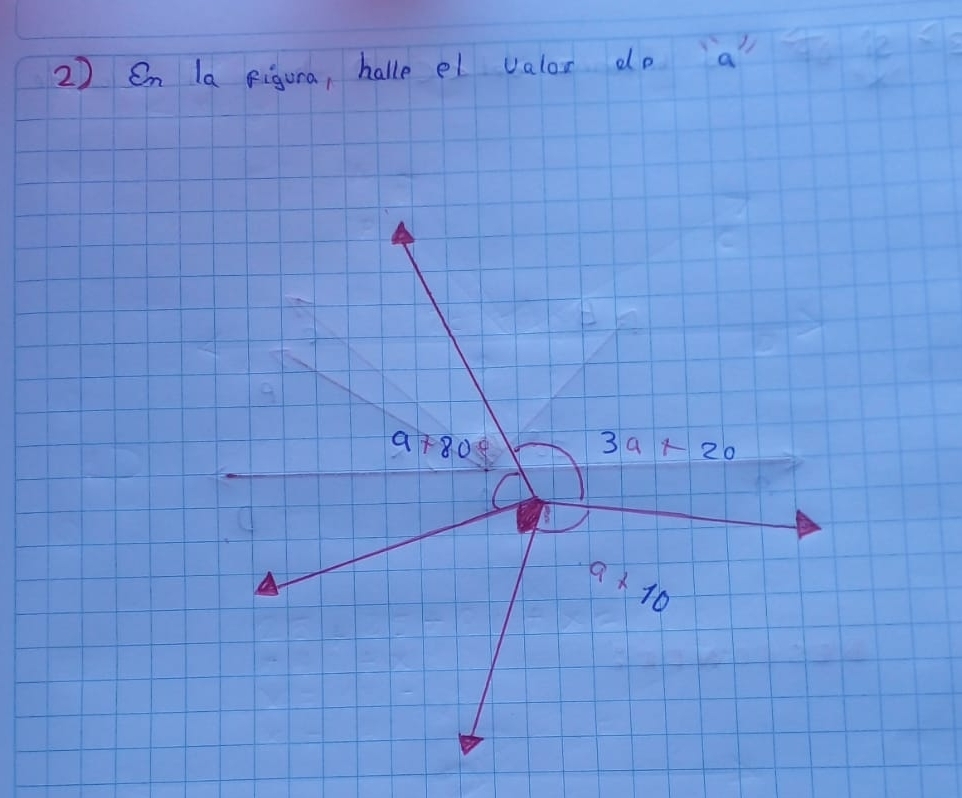 2) En la figura, halle el valor de "a"
a+80
3a + 20
a + 10